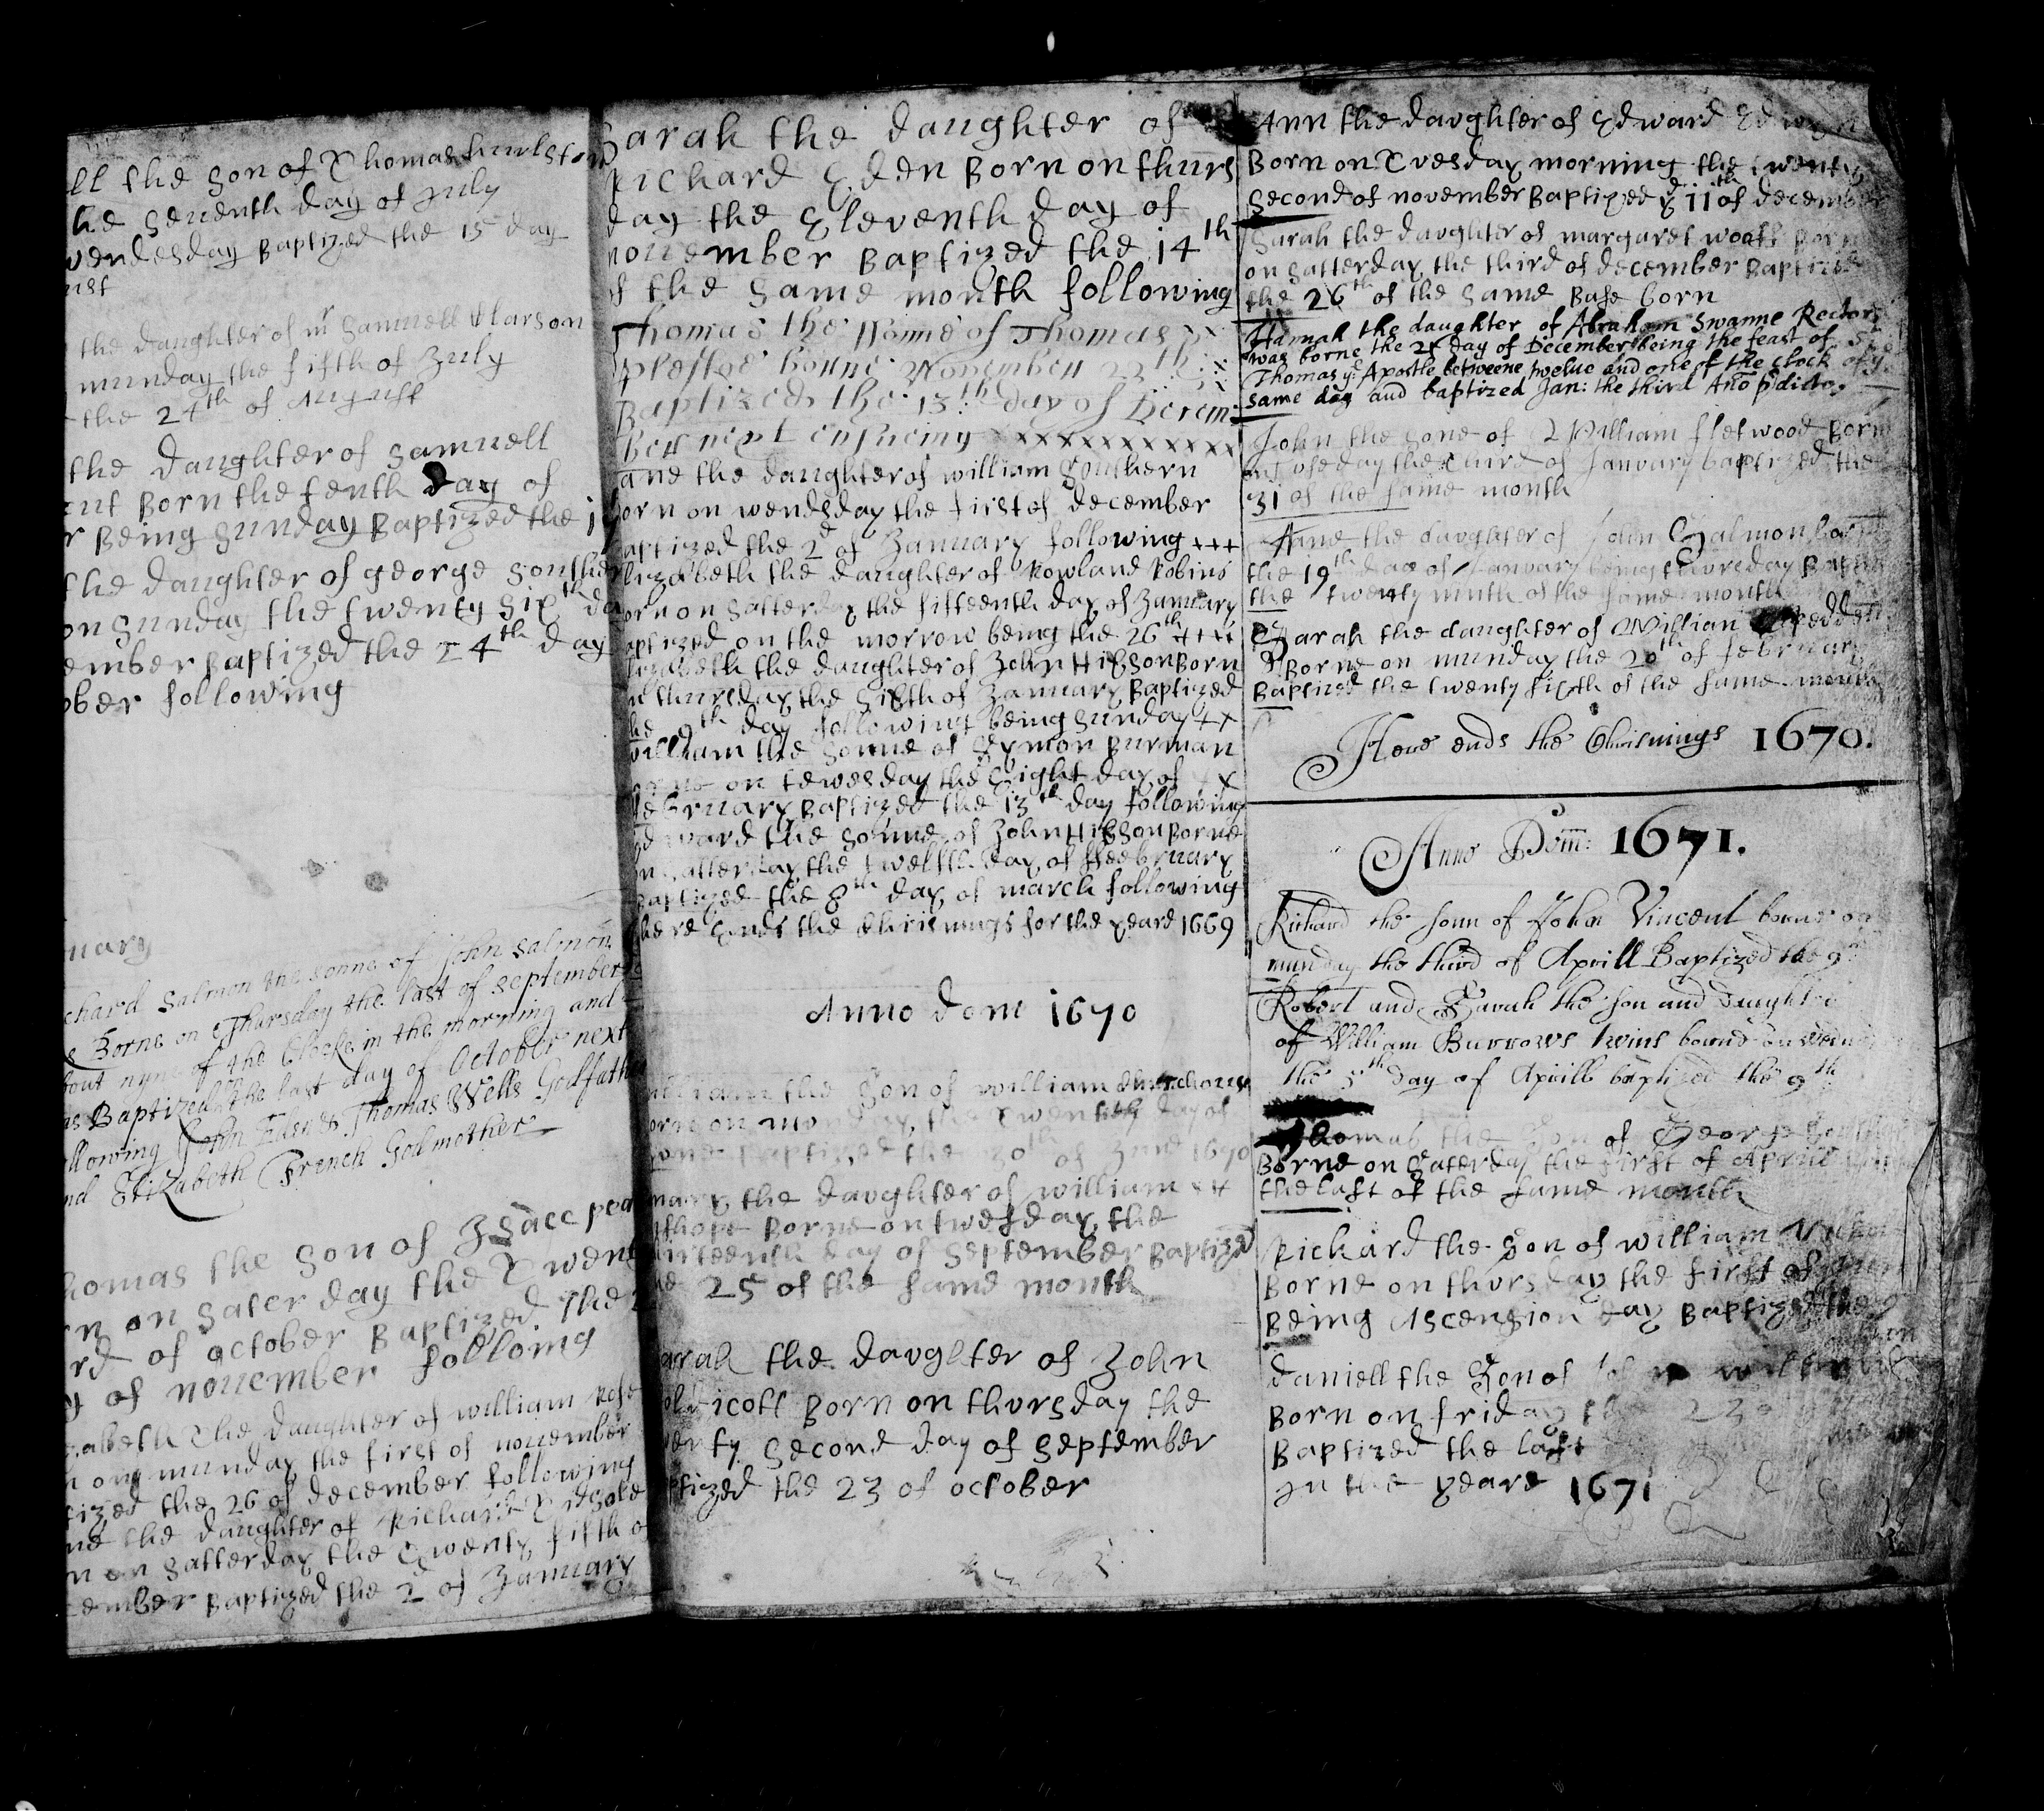 ll the son of Thomas
he seuenth day of july
wendesday Baptized the 15 day
ust
the daughter of mr Samuell
munday the fifth of July
the 24th of August
the daughter of samuell
ent Born the tenth day of
r Being sunday Baptized the
the daughter of george
on sunday the twenty six th da
ember Baptized the 24th day
ober following
uary
chard Salmon the sonne of John Salmon
Borne on Thursday the last of September
bout nyne of the Clocke in the morning and
as Baptized the last day of October next
ollowing John Thomas Wells Godfath
nd Elizabeth French Godmother
homas the son of Isacc
rn on sater day the Twent
rd of october Baptized the
y of nouember folloing
abeth the daughter of william Rose
n on munday the first of nouember
tized the 26 of december following
ne the daughter of Richard
n on satterday the Twenty fifth of
cember Baptized the 2 of January
Sarah the daughter of
Richard Eden Born on thurs
day the Eleventh day of
nouember Baptized the 14th
of the same month following
Thomas the Sonne of Thomas
borne November 22th
Baptized the 13th day of Decem
Ber next ensueing xxxxxxxxxxx
ane the daughter of william Southern
orn on wendsday the first of december
aptized the 2d of January following +++
lizabeth the daughter of Rowland Robins
orn on satterday the fifteenth day of January
aptized on the morrow being the 26th ++++
lizabeth the daughter of John Hibson Born
n thursday the sixth of January Baptized
he 9th day following being sunday ++
william the sonne of Symon Burman
on tewesday the Eight day of
February Baptized the 13th day following
Edward the sonne of John Hibson Borne
on satterday the twelfth day of ffebruary
Baptized the 8th day of march following
here Ends the Chrisnings for the yeare 1669
Anno dom 1670
william the son of william
orne on monday the Twentieth day of
June Baptized the 30th of June 1670
mary the daughter of william ++
Borne on twesday the
irteenth day of September Baptized
he 25 of the same month
arah the daughter of John
oldicott Born on thursday the
wenty second day of September
ptized the 23 of october
Ann the daughter of Edward
Born on Tuesday morning the twenty
second of november Baptized ye 11th of december
Sarah the daughter of margaret Born
on satterday the third of december Baptized
the 26th of the same Base born
Hannah the daughter of Abraham Swanne Rector
was borne the 21 day of December being the feast of St
Thomas ye Apostle betweene twelue and one of the clock of ye
same day and baptized Jan: the third Ano pdicto.
John the sone of William fletwood Born
on tuseday the third of January baptized the
31 of the same month
Anne the daughter of John Salmon bor
the 19th day of January being thursday Baptiz
the twenty ninth of the same month
Sarah the daughter of William
Borne on munday the 20th of february
Baptized the twenty sixth of the same month
Here ends the Chrisnings 1670.
Anno Dom: 1671.
Richard the sonn of John Vincent borne on
munday the third of Aprill Baptized the 9th
Robert and Sarah the son and daughter
of William Burrows twins bound on
the 5th day of Aprill baptized the 9th
Thomas the Son of George
Borne on Saterday the first of Aprill
the last of the same month
Richard the son of william
Borne on thursday the first of
Being Ascension day Baptized the
daniell the Son of
Born on friday the 23
Baptized the last
in the yeare 1671